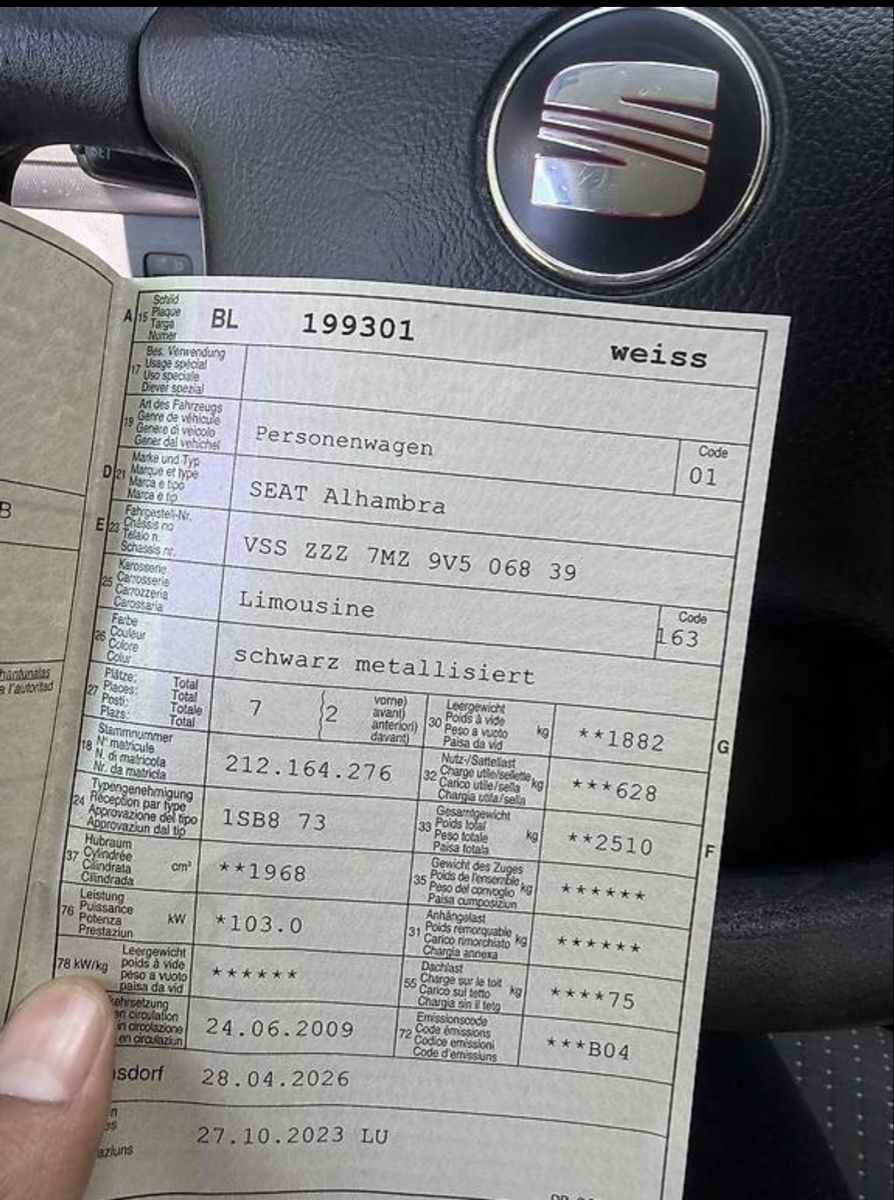 SET
A 15 Schild
Plaque
Targa
Numer
BL 199301 weiss
17 Bes. Verwendung
Usage spécial
Uso speciale
Diever spezial
19 Art des Fahrzeugs
Genre de véhicule
Genere di veicolo
Gener dal vehichel
Personenwagen
Code
01
D 21 Marke und Typ
Marque et type
Marca e tipo
Marca e tip
SEAT Alhambra
E 23 Fahrgestell-Nr.
Châssis no
Telaio n.
Schassis nr.
VSS ZZZ 7MZ 9V5 068 39
25 Karosserie
Carrosserie
Carrozzeria
Carossaria
Limousine
Code
163
26 Farbe
Couleur
Colore
Colur
schwarz metallisiert
27 Plätze: Total
Places: Total
Posti: Totale
Plazs: Total
7 2 vorne)
avant)
anteriori)
davant)
30 Leergewicht
Poids à vide
Peso a vuoto
Paisa da vid
kg **1882 G
18 Stammnummer
N° matricule
N. di matricola
Nr. da matricla
212.164.276
32 Nutz-/Sattellast
Charge utile/sellette kg
Carico utile/sella
Chargia utila/sella
***628
24 Typengenehmigung
Réception par type
Approvazione del tipo
Approvaziun dal tip
1SB8 73
33 Gesamtgewicht
Poids total
Peso totale
Paisa totala
kg **2510 F
37 Hubraum
Cylindrée
Cilindrata
Cilindrada
cm³ **1968
35 Gewicht des Zuges
Poids de l'ensemble
Peso del convoglio kg
Paisa cumposiziun
******
76 Leistung
Puissance
Potenza
Prestaziun
kW *103.0
31 Anhängelast
Poids remorquable
Carico rimorchiato kg
Chargia annexa
******
78 kW/kg Leergewicht
poids à vide
peso a vuoto
paisa da vid
******
55 Dachlast
Charge sur le toit
Carico sul tetto kg
Chargia sin il tetg
****75
ehrsetzung
en circulation
in circolazione
en circulaziun
24.06.2009
72 Emissionscode
Code émissions
Codice emissioni
Code d'emissiuns
***B04
sdorf 28.04.2026
27.10.2023 LU
aziuns
B
hantunalas
a l'autoritad